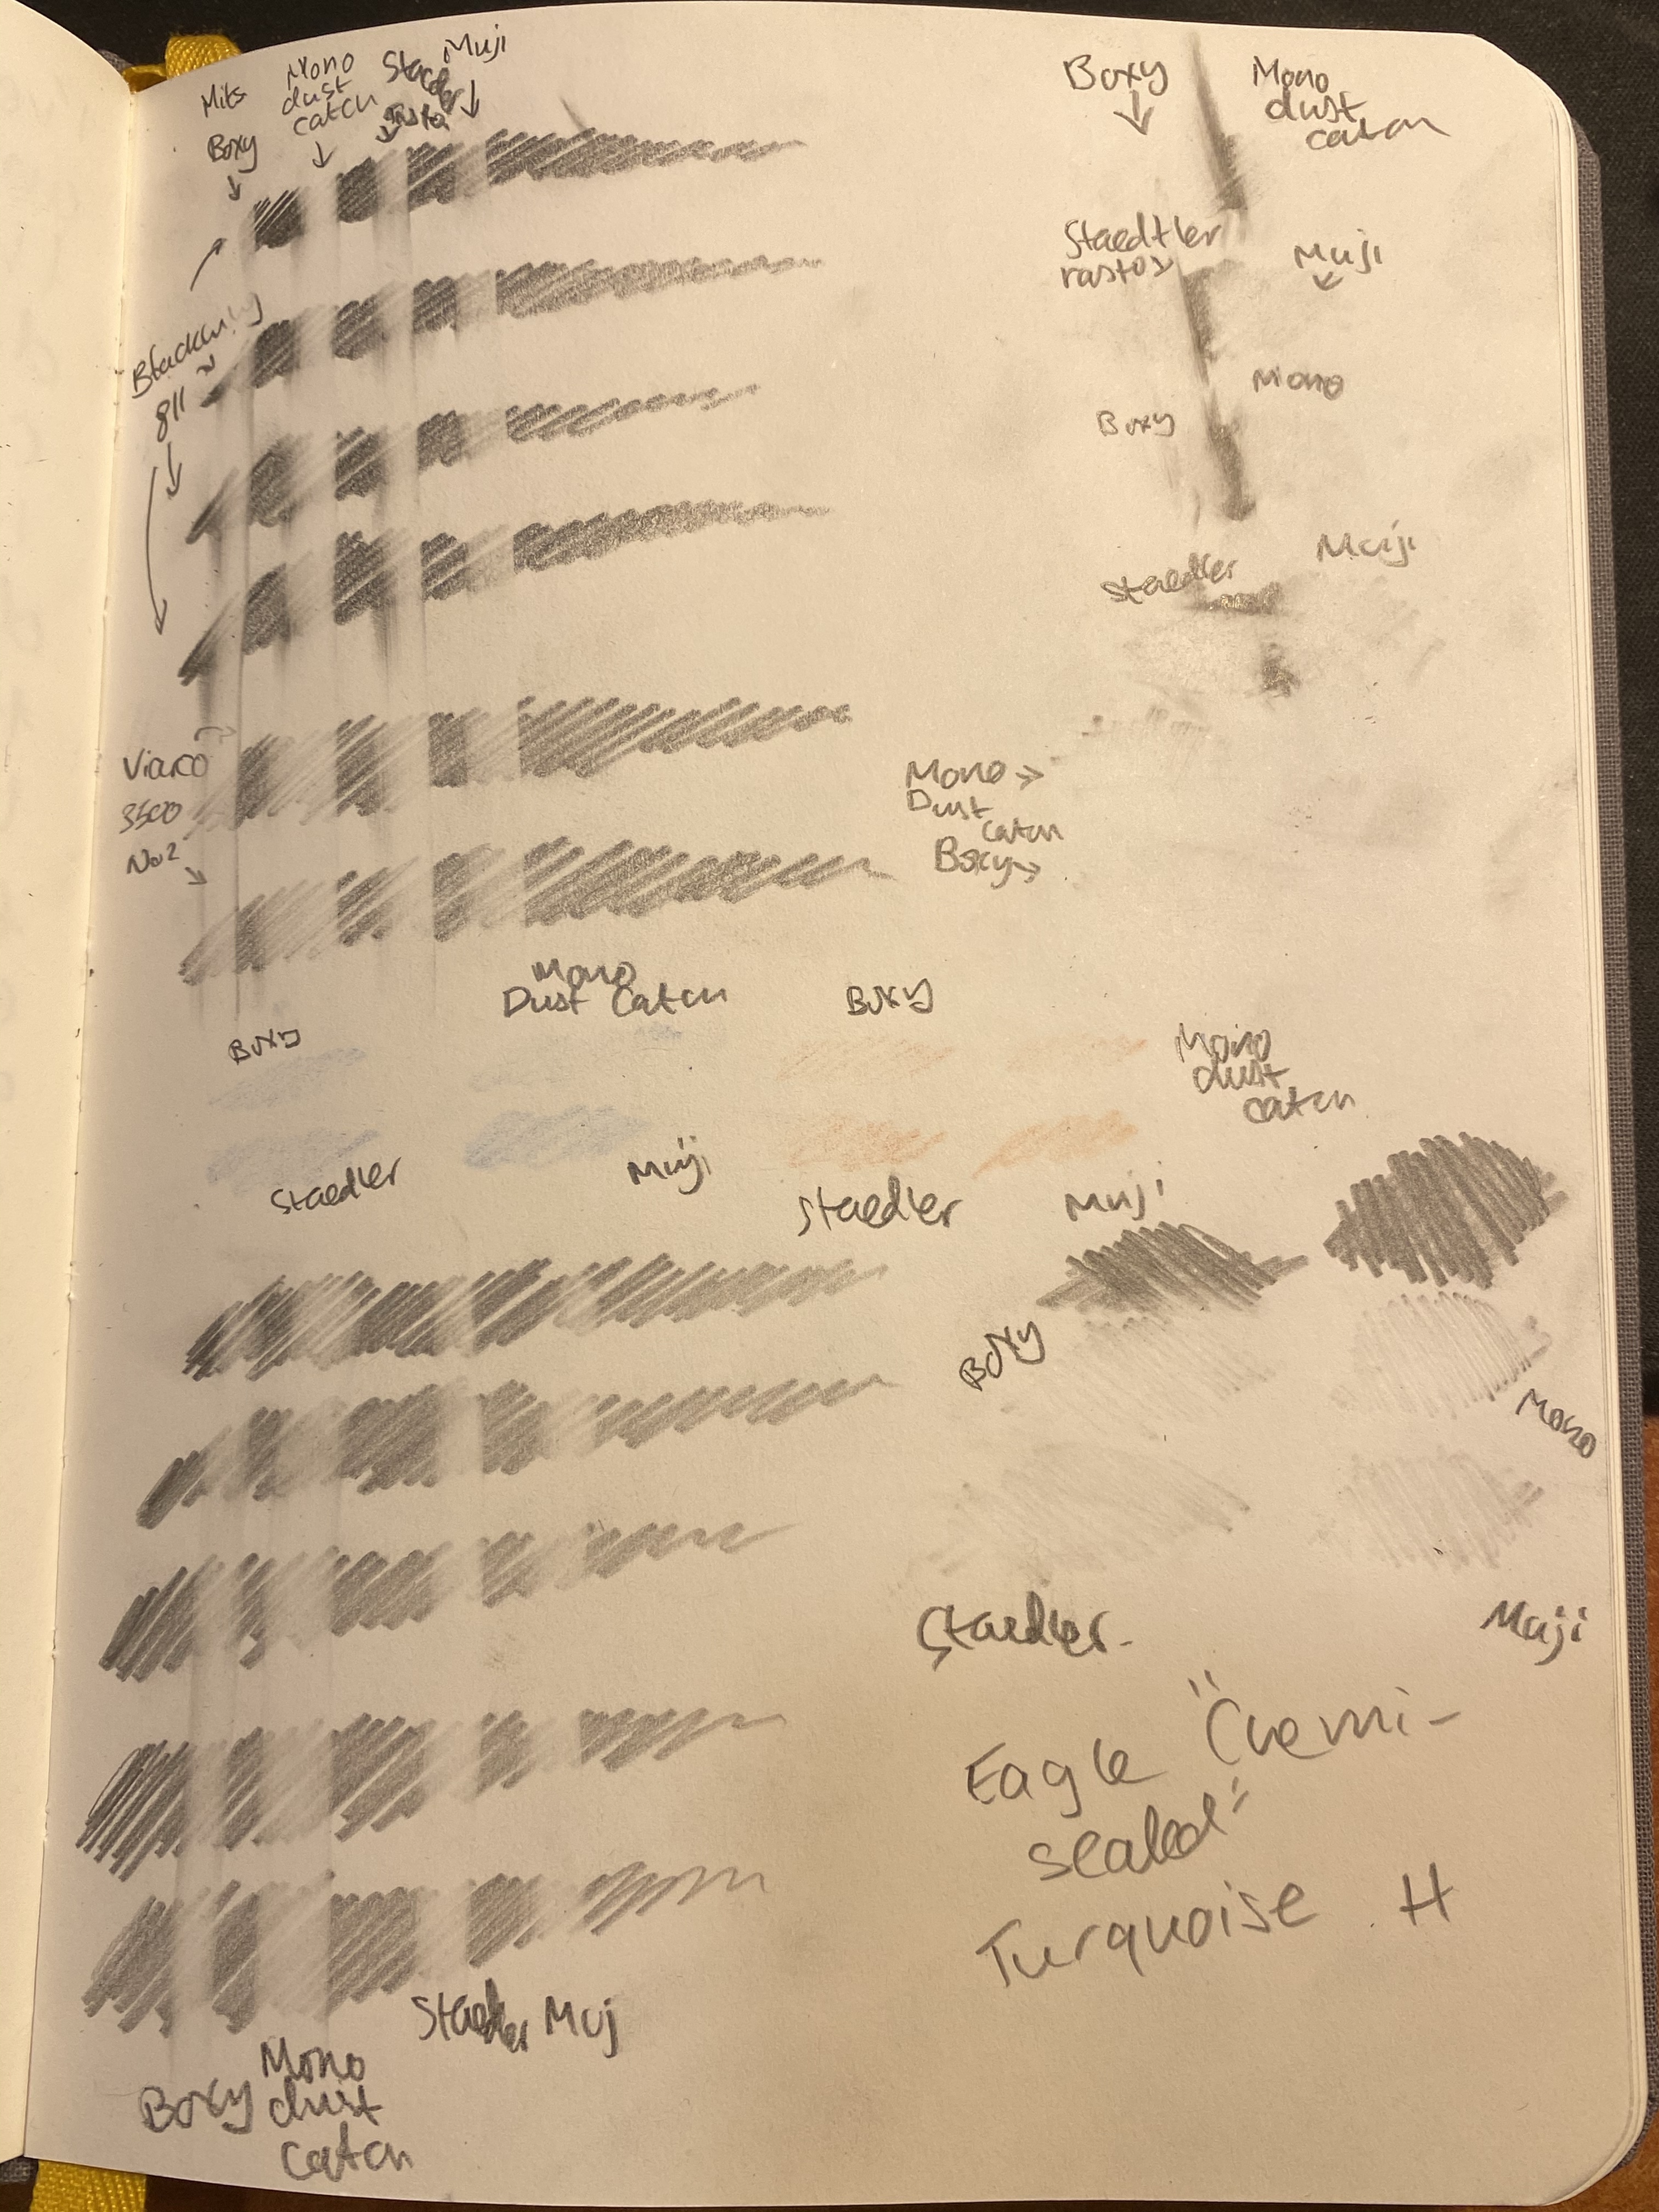 Mits
Boxy
Mono
dust
catch
Staedler
Muji
Boxy
Mono
dust
catch
Staedtler
rastos
Muji
Blackwing
811
Boxy
Mono
Staedler
Muji
Viarco
3500
No 2
Mono
Dust
Catch
Boxy
Mono
Dust Catch
Boxy
Boxy
Mono
dust
catch
Staedler
Muji
Staedler
Muji
Boxy
Mono
Staedler
Muji
Eagle "Chemi-
sealed"
Turquoise H
Staedler
Muj
Boxy
Mono
dust
catch